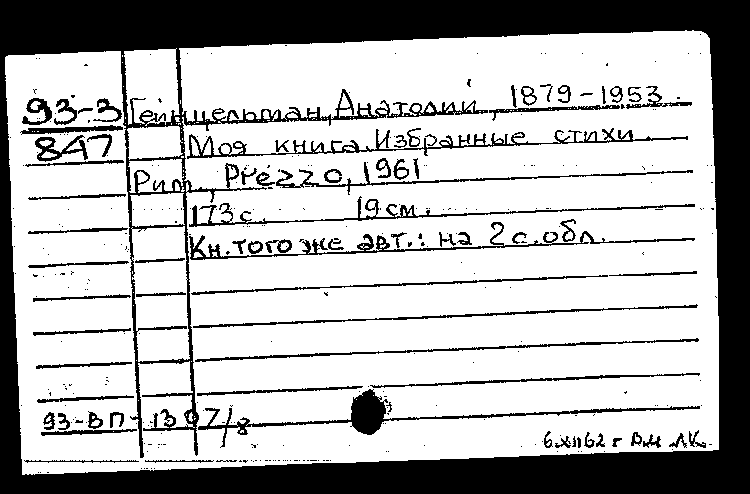 93-3 Гейнцельман, Анатолий, 1879-1953.
847 Моя книга. Избранные стихи.
Рим, Prezzo, 1961
173 с. 19 см.
Кн. того же авт.: на 2 с. обл.
93-ВП-1307/8